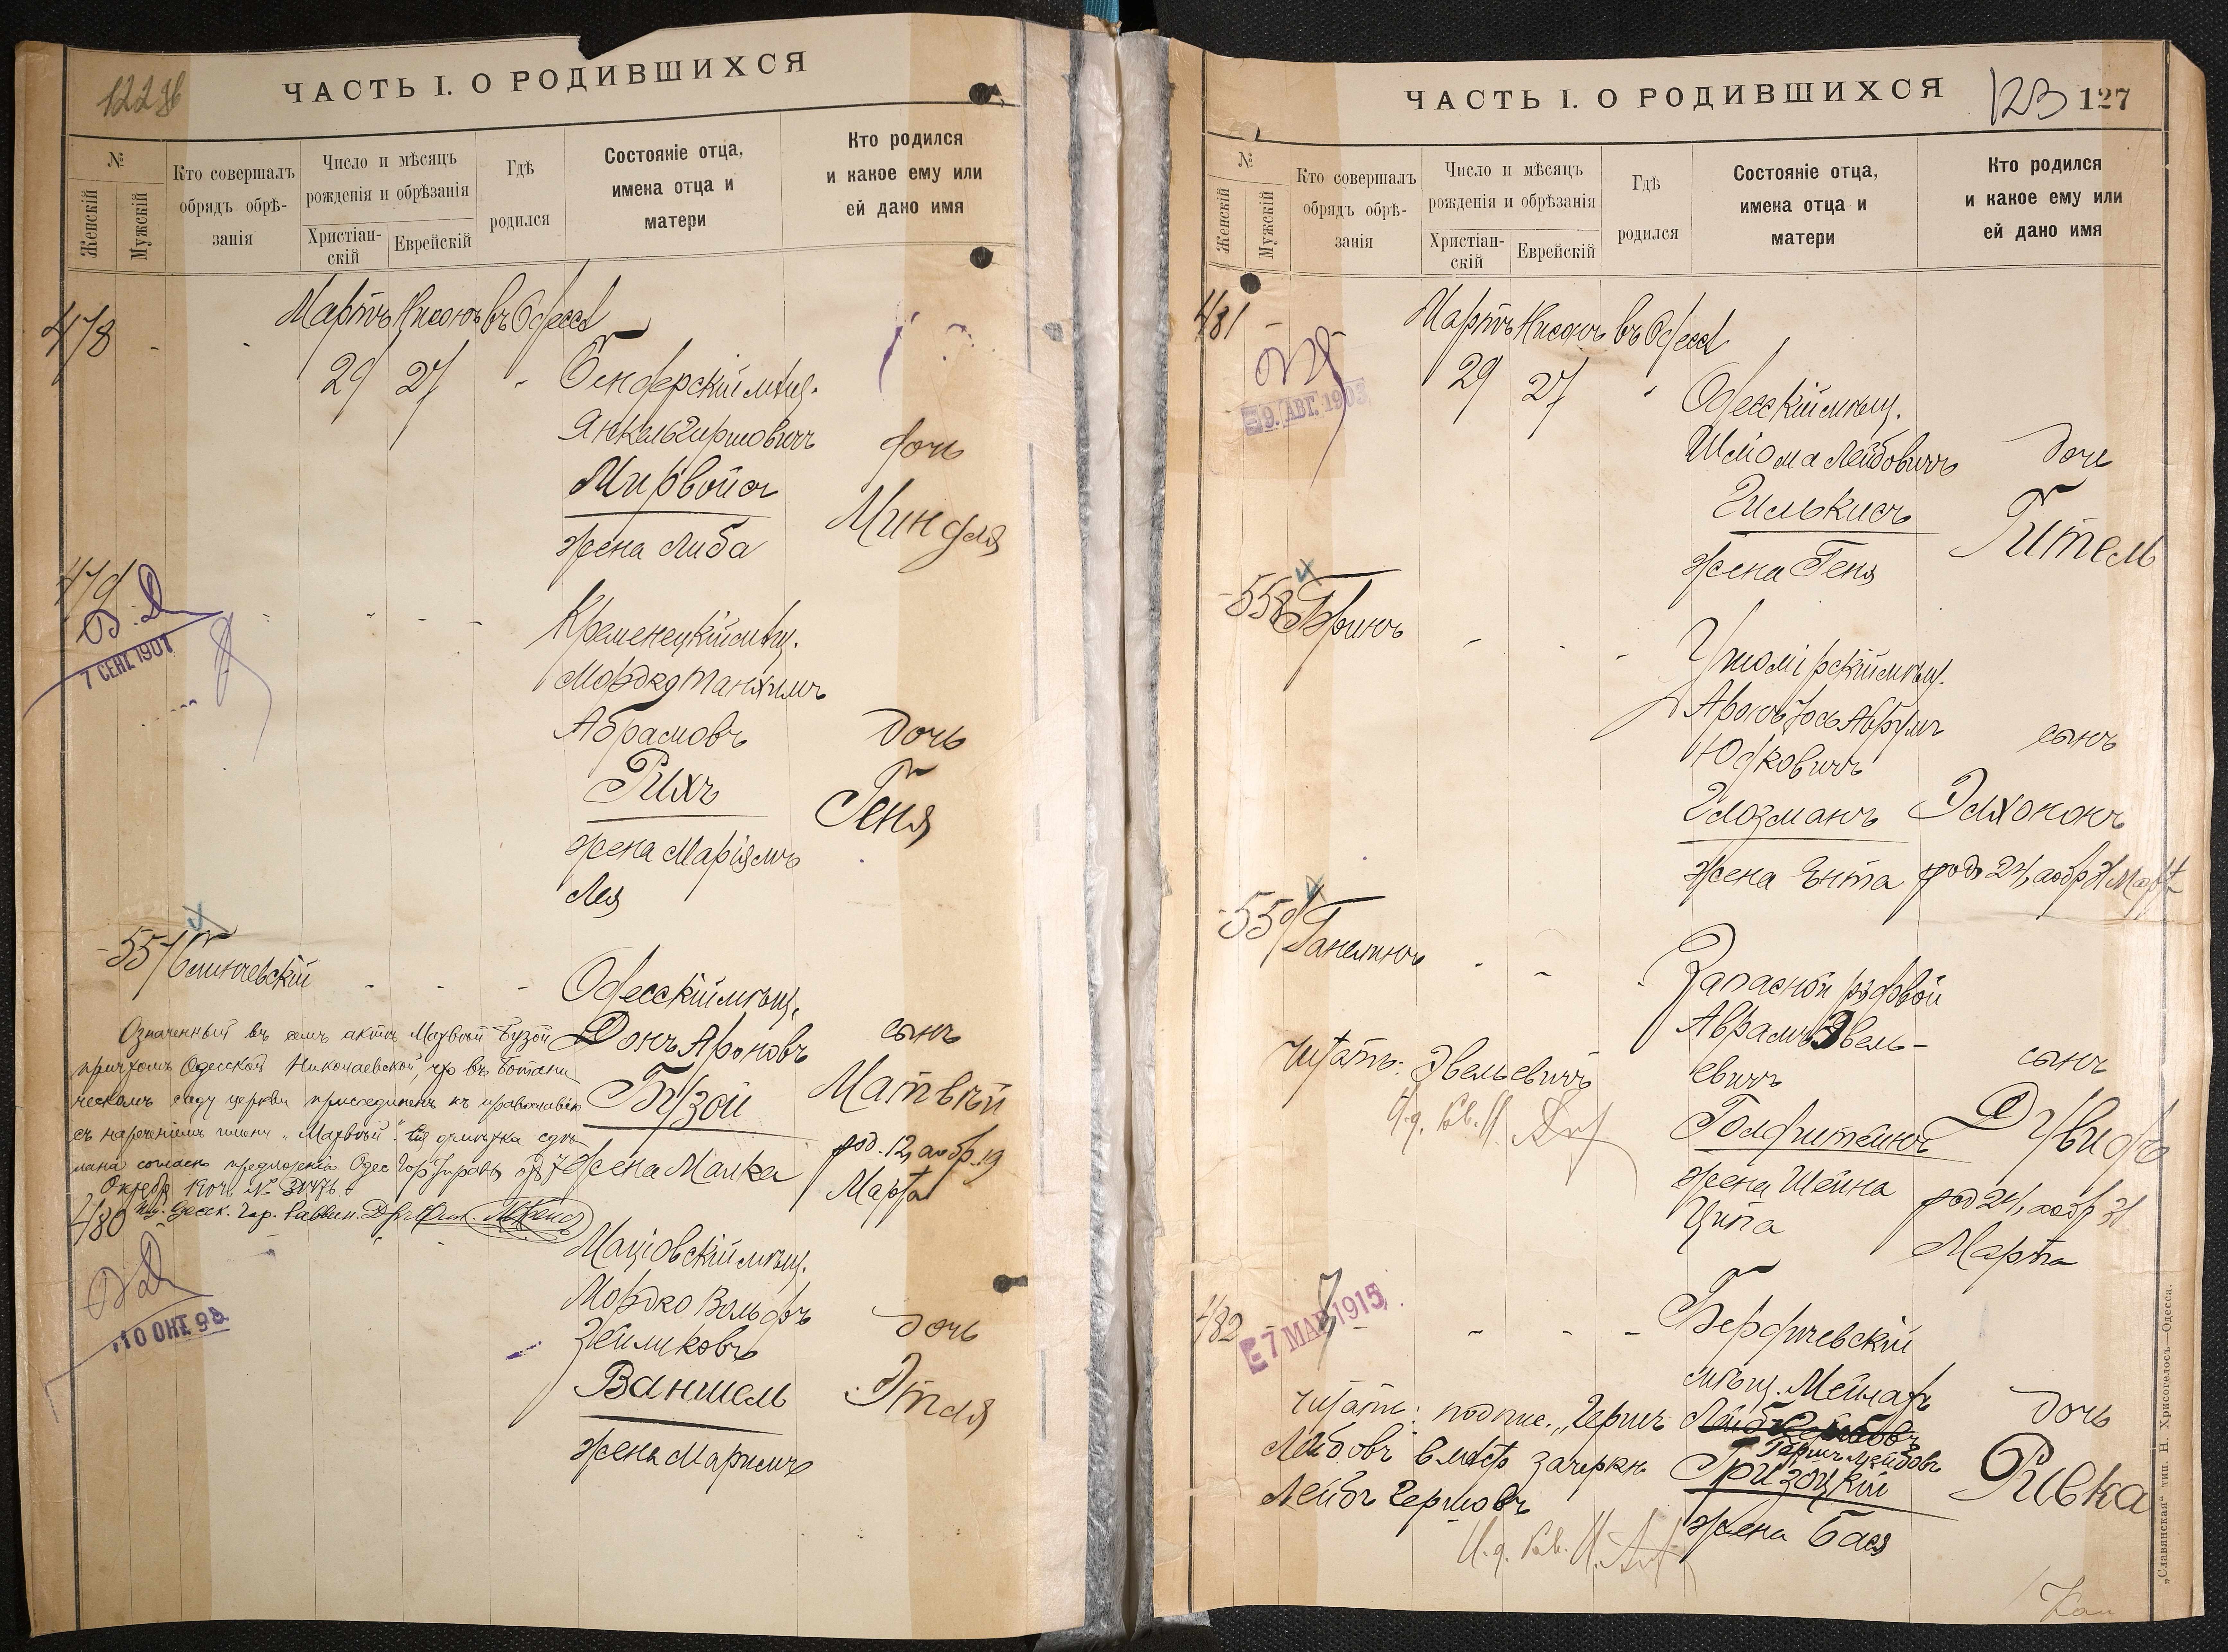 122 об
ЧАСТЬ I. О РОДИВШИХСЯ
№
Женскій
Мужскій
Кто совершалъ обрядъ обрѣ-занія
Число и мѣсяцъ рожденія и обрѣзанія
Христіан-скій
Еврейскій
Гдѣ родился
Состояніе отца, имена отца и матери
Кто родился и какое ему или ей дано имя
478
Мартъ Нисонъ въ Одессѣ
29 27
Бендерскій мѣщ.
Янкель Гиршовичъ
дочь
Мирвойсъ
Миндля
жена Либа
479
В.Д.
7 СЕН. 1907
Кременецкій мѣщ.
Мордко Танхимъ
Абрамовъ
дочь
Рихъ
Геня
жена Маріямъ
Лея
557
Слинчевскій
Одесскій мѣщ.
Донъ Ароновъ
сынъ
Бузой
Матвѣй
жена Малка
род. 12, а обр. 19
Марта
Означенный въ семъ актѣ Матвѣй Бузой
причтомъ Одесской Николаевской, что въ Ботани
ческомъ саду церкви присоединенъ къ православію
съ нареченіемъ имени „Матвѣй". Сія отмѣтка сдѣ
лана согласно предложенію Одес. Гор. Управы отъ 7
Октября 1904 №
Одесск. Гор. Раввин.
480
10 ОКТ. 98
Маціовскій мѣщ.
Мордко Вольфъ
Зейликовъ
дочь
Ваншель
Этля
жена Маримъ
ЧАСТЬ I. О РОДИВШИХСЯ
123
127
№
Женскій
Мужскій
Кто совершалъ обрядъ обрѣ-занія
Число и мѣсяцъ рожденія и обрѣзанія
Христіан-скій
Еврейскій
Гдѣ родился
Состояніе отца, имена отца и матери
Кто родился и какое ему или ей дано имя
481
Мартъ Нисонъ въ Одессѣ
29 27
9. АВГ. 1903
Одесскій мѣщ.
Шлёма Лейбовичъ
дочь
Гилькисъ
Гитель
жена Геня
558
Гринъ
Ушомірскій мѣщ.
Аронъ Іось Абрумъ
Юдковичъ
сынъ
Глозманъ
Элхононъ
жена Энта
род. 24, а обр. 31 Марта
559
Ганелинъ
Запасной рядовой
Абрамъ Эвель-
евичъ
сынъ
Голдштейнъ
Дувидъ
жена Шейна
Ципа
род 24, а обр 31
Марта
Читать: Эвельевичъ
И.д. Рав.
482
7 МАР 1915
Бердичевскій
мѣщ. Мейлахъ
Гершъ Лейбовъ
дочь
Гризоцкій
Ривка
жена Бася
Читать: подпис. „Гершъ
Лейбовъ вмѣсто зачеркн.
Лейбъ Гершовъ
И.д. Рав.
„Славянская" тип. Н. Хрисогелосъ.—Одесса.